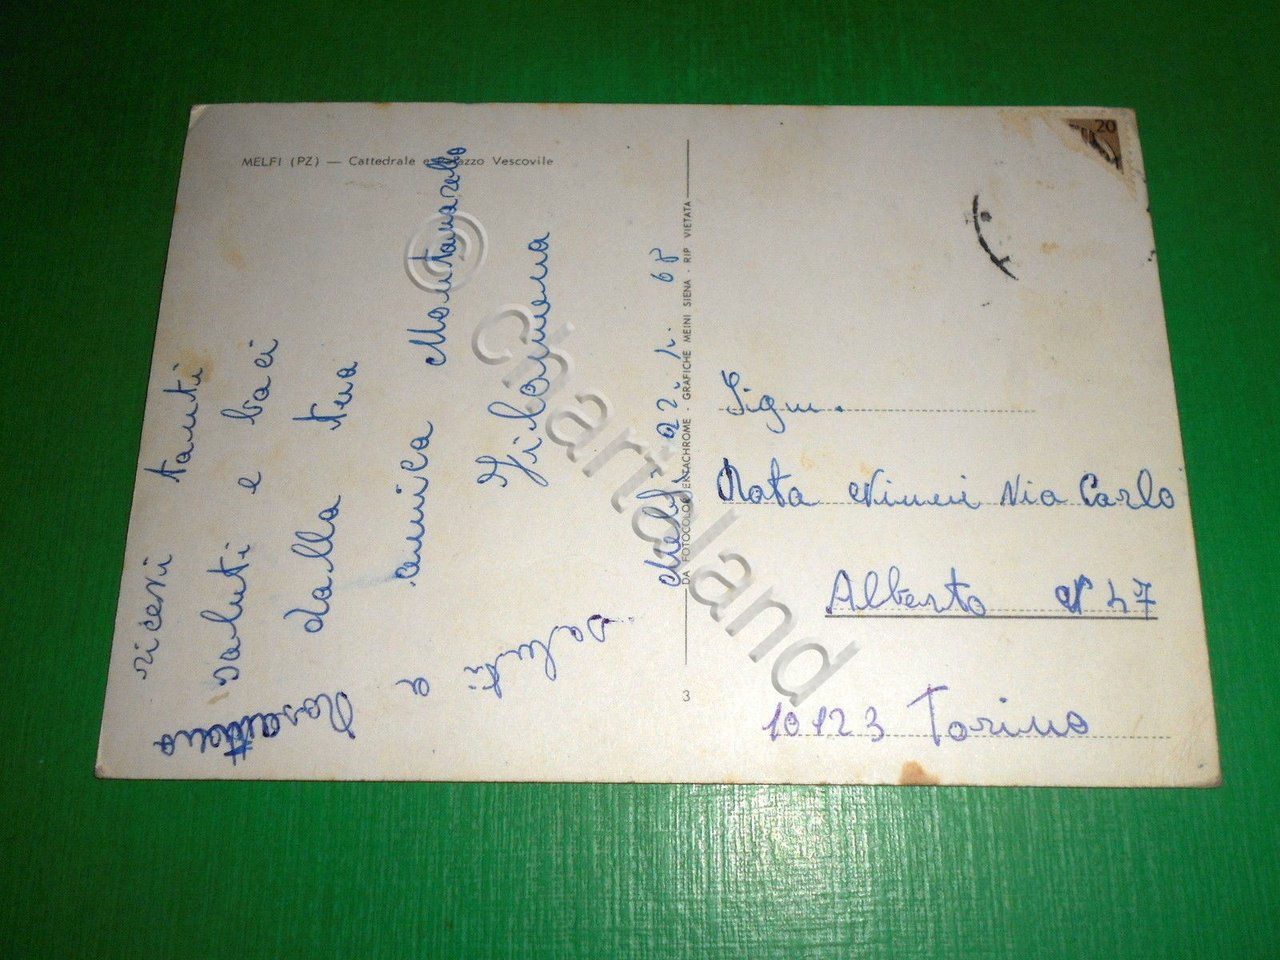 MELFI (PZ) — Cattedrale e Palazzo Vescovile
20
ricevi tanti
saluti e baci
dalla tua
amica Montanarello
Filomena
Melfi 22.1.68
3
DA FOTOCOLOR EKTACHROME - GRAFICHE MEINI SIENA - RIP VIETATA
Sign.
Rota Ninni Via Carlo
Alberto N 47
10123 Torino
© Chartaland